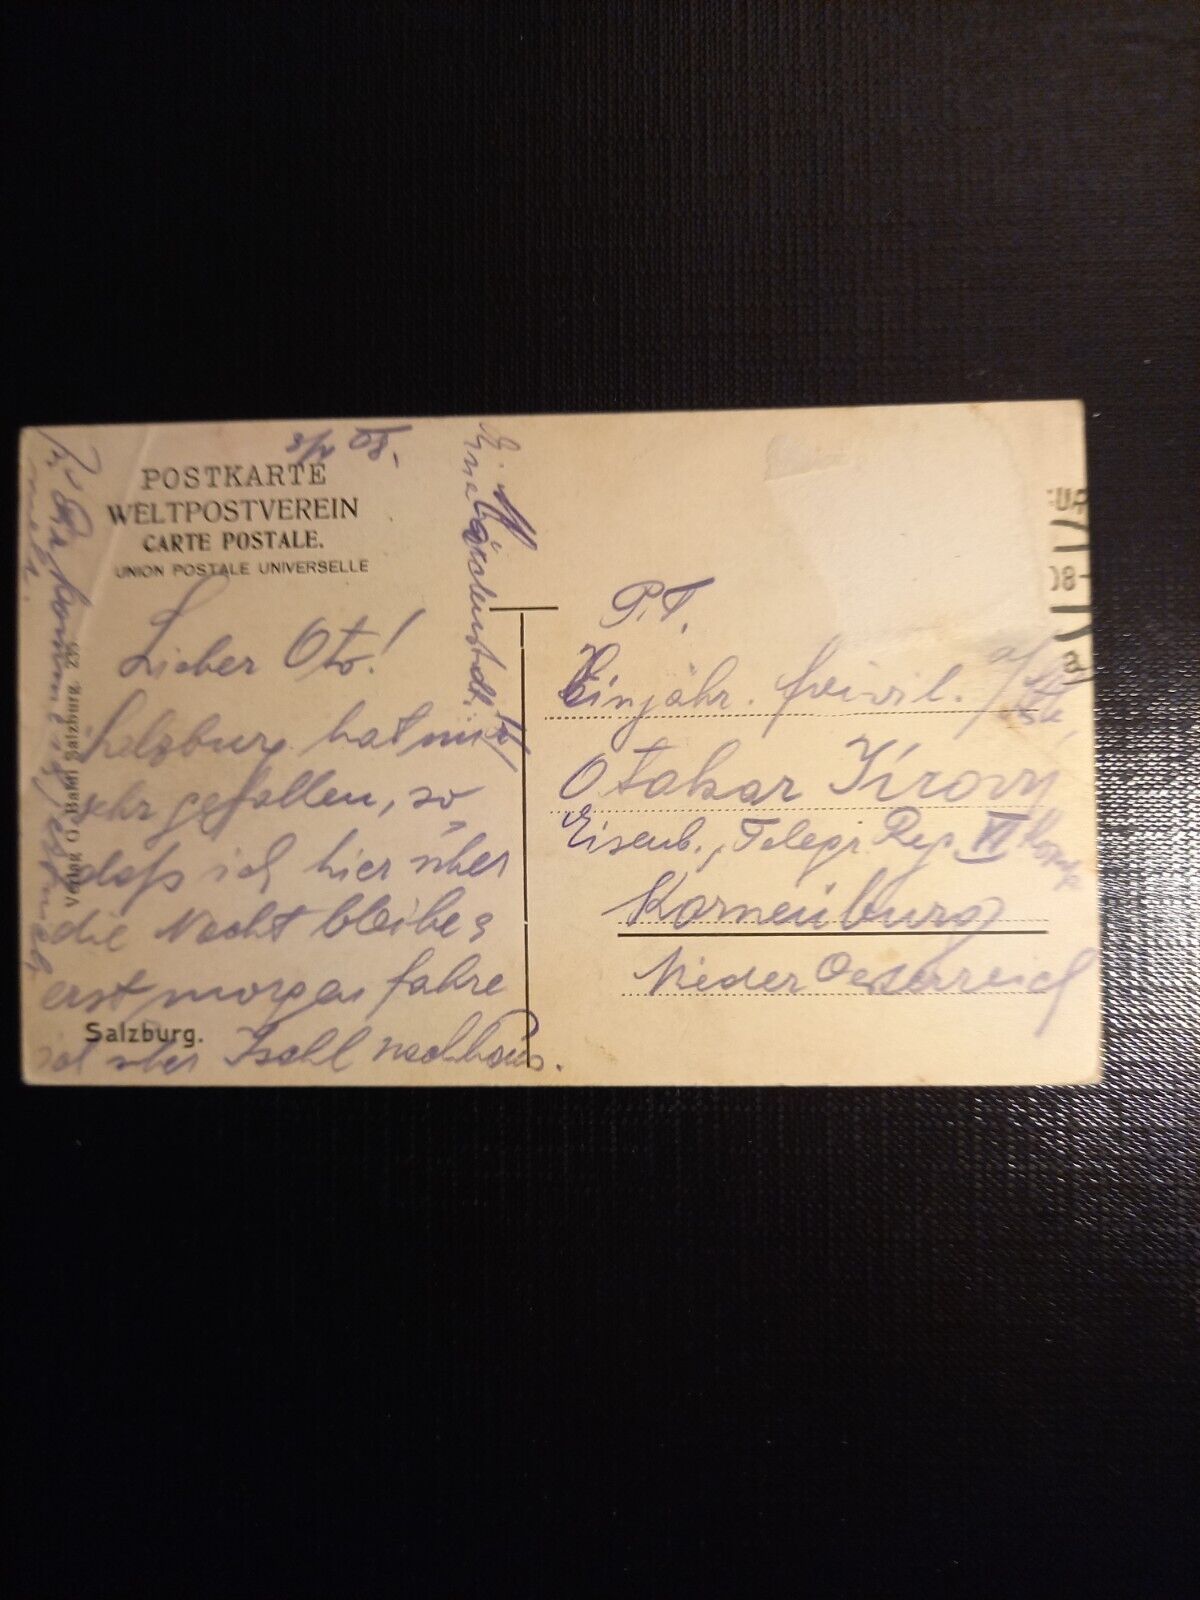 08.
POSTKARTE
WELTPOSTVEREIN
CARTE POSTALE.
UNION POSTALE UNIVERSELLE
Lieber Oto!
Salzburg hat mir
sehr gefallen, so
daß ich hier über
die Nacht bleibe &
erst morgen fahre
ich über Ischl nachhaus.
Salzburg.
Verlag O. Salzburg. 235
P.T.
Einjähr. freiwil.
Otakar
Eisenb., Telegr. Reg. VI Komp
Korneuburg
Nieder Oesterreich
08-
a